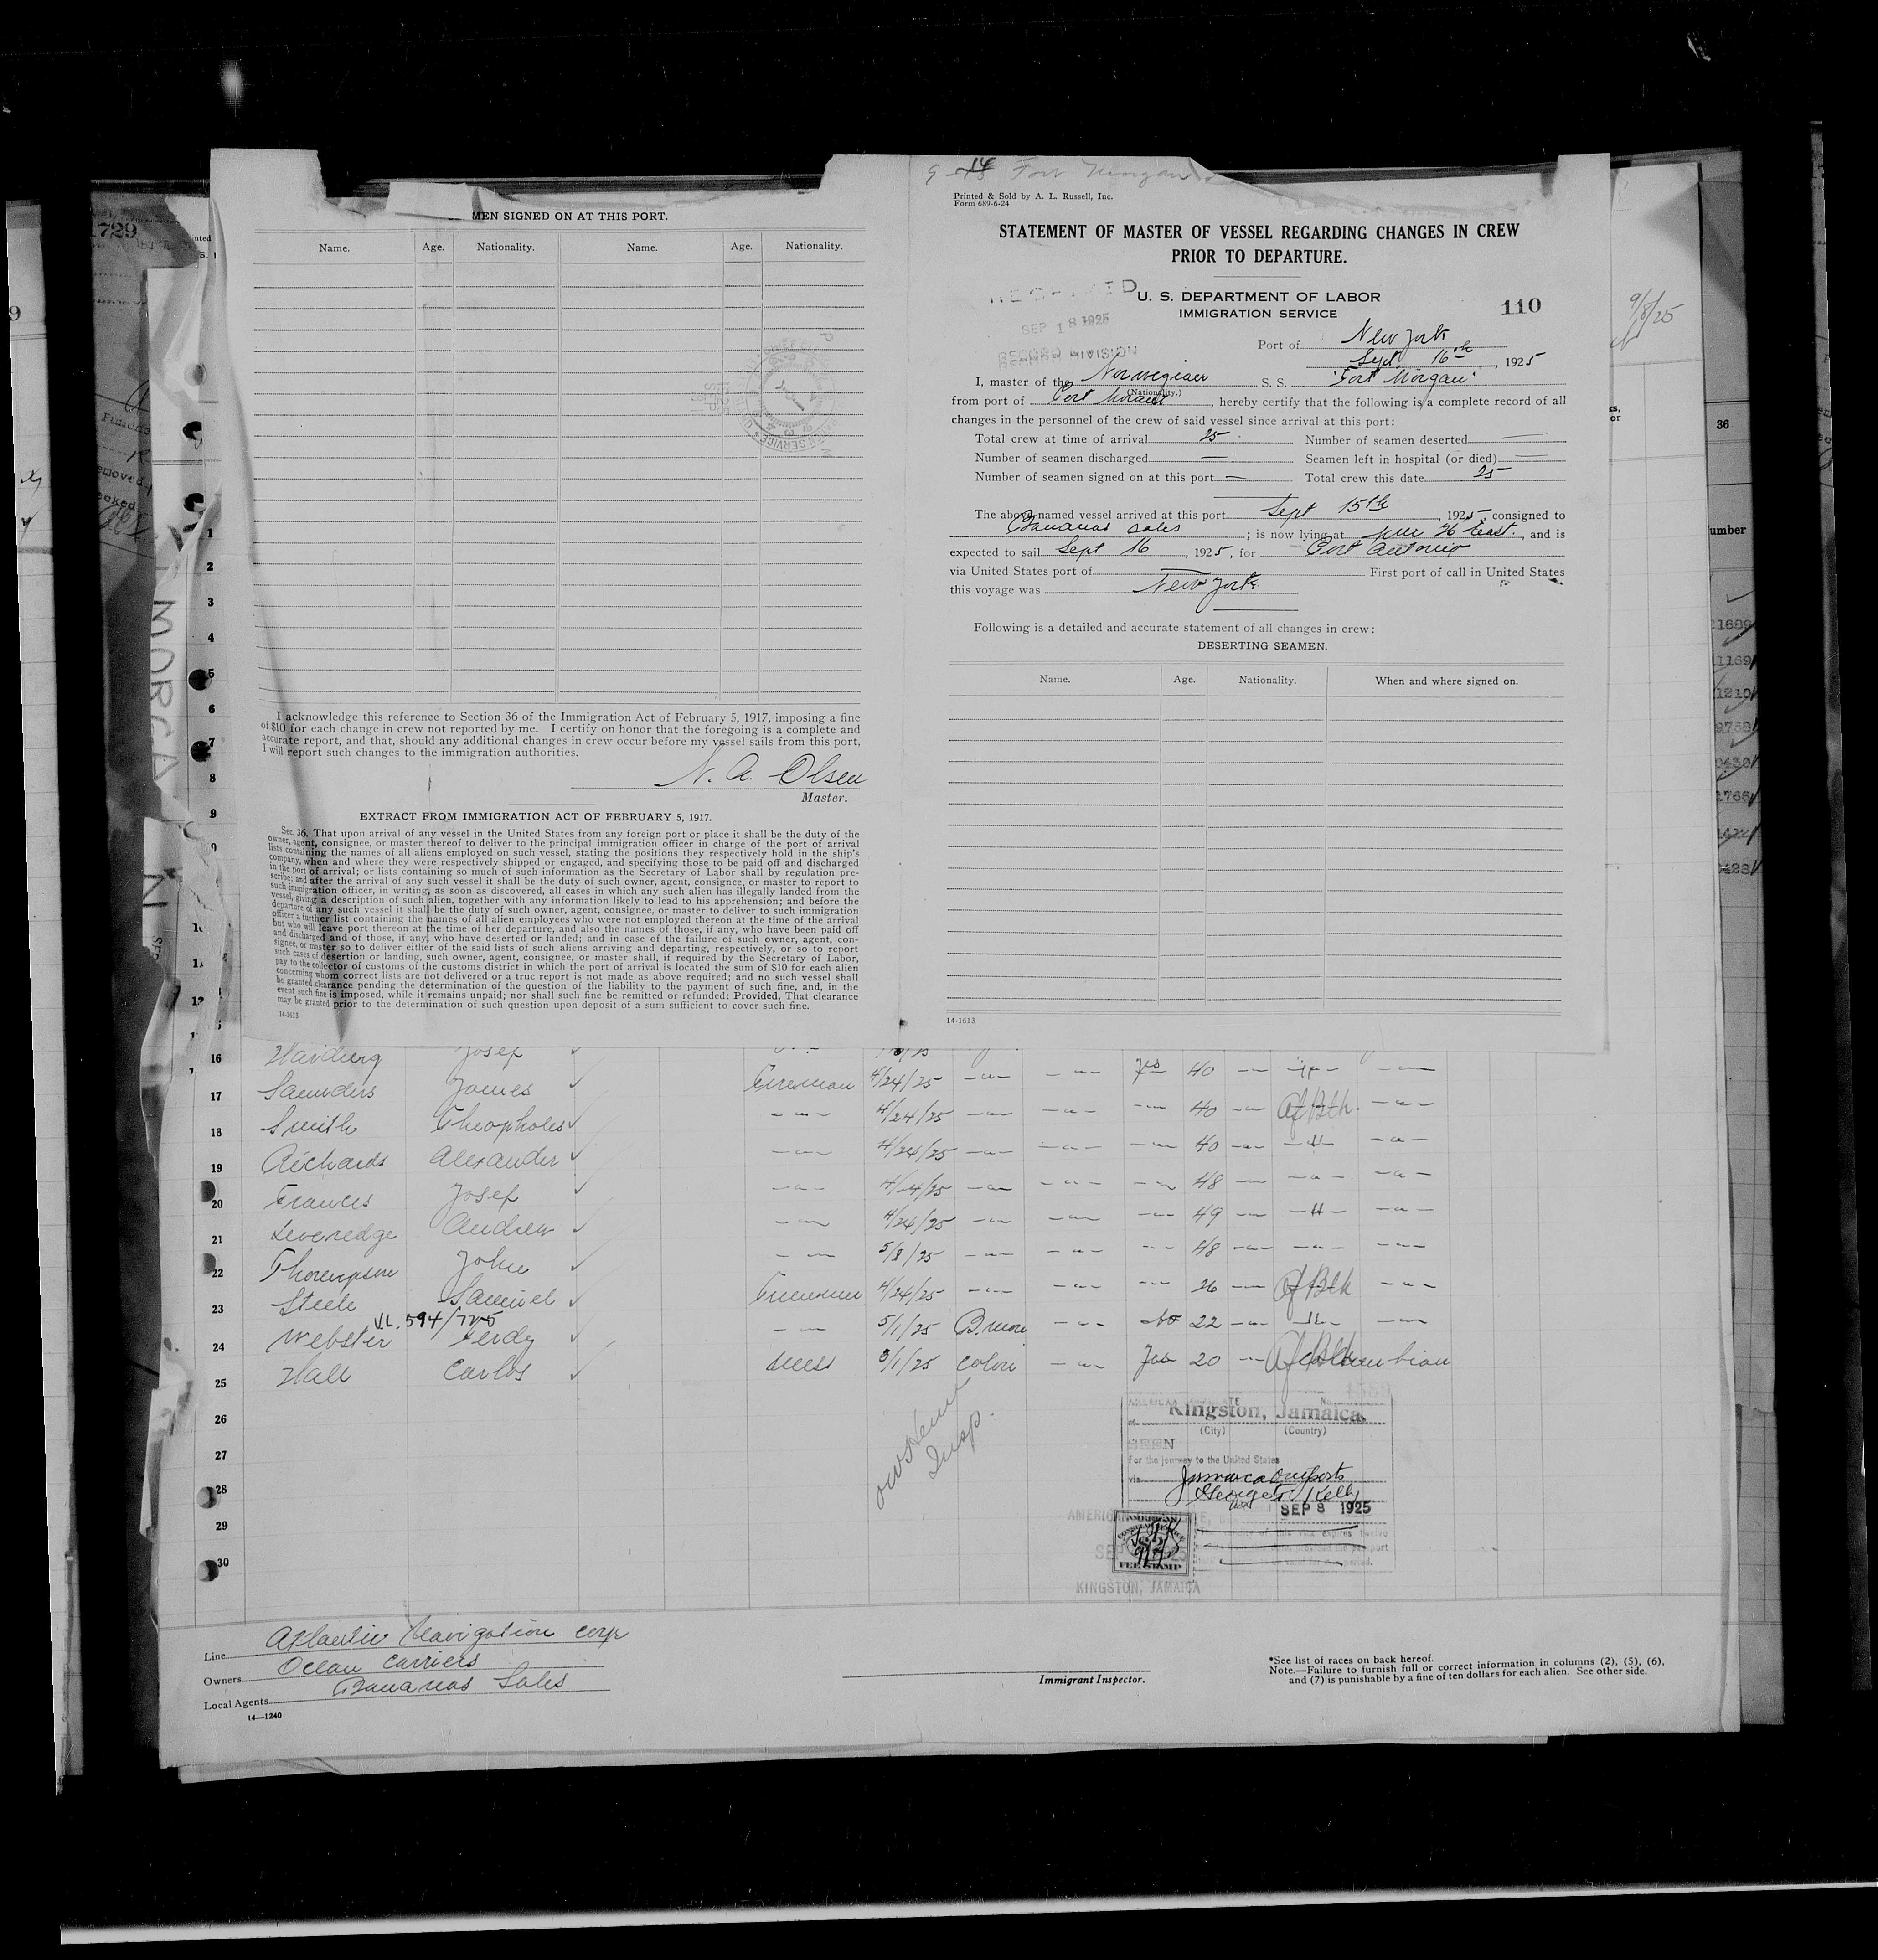 MEN SIGNED ON AT THIS PORT.
Name. Age. Nationality. Name. Age. Nationality.
I acknowledge this reference to Section 36 of the Immigration Act of February 5, 1917, imposing a fine
of $10 for each change in crew not reported by me. I certify on honor that the foregoing is a complete and
accurate report, and that, should any additional changes in crew occur before my vessel sails from this port,
I will report such changes to the immigration authorities.
N. A. Olsen
Master.
EXTRACT FROM IMMIGRATION ACT OF FEBRUARY 5, 1917.
Sec. 36. That upon arrival of any vessel in the United States from any foreign port or place it shall be the duty of the
owner, agent, consignee, or master thereof to deliver to the principal immigration officer in charge of the port of arrival
lists containing the names of all aliens employed on such vessel, stating the positions they respectively hold in the ship's
company, when and where they were respectively shipped or engaged, and specifying those to be paid off and discharged
in the port of arrival; or lists containing so much of such information as the Secretary of Labor shall by regulation pre-
scribe; and after the arrival of any such vessel it shall be the duty of such owner, agent, consignee, or master to report to
such immigration officer, in writing, as soon as discovered, all cases in which any such alien has illegally landed from the
vessel, giving a description of such alien, together with any information likely to lead to his apprehension; and before the
departure of any such vessel it shall be the duty of such owner, agent, consignee, or master to deliver to such immigration
officer a further list containing the names of all alien employees who were not employed thereon at the time of the arrival
but who will leave port thereon at the time of her departure, and also the names of those, if any, who have been paid off
and discharged and of those, if any, who have deserted or landed; and in case of the failure of such owner, agent, con-
signee, or master so to deliver either of the said lists of such aliens arriving and departing, respectively, or so to report
such cases of desertion or landing, such owner, agent, consignee, or master shall, if required by the Secretary of Labor,
pay to the collector of customs of the customs district in which the port of arrival is located the sum of $10 for each alien
concerning whom correct lists are not delivered or a truc report is not made as above required; and no such vessel shall
be granted clearance pending the determination of the question of the liability to the payment of such fine, and, in the
event such fine is imposed, while it remains unpaid; nor shall such fine be remitted or refunded: Provided, That clearance
may be granted prior to the determination of such question upon deposit of a sum sufficient to cover such fine.
14-1613
Fort Morgan
Printed & Sold by A. L. Russell, Inc.
Form 689-6-24
STATEMENT OF MASTER OF VESSEL REGARDING CHANGES IN CREW
PRIOR TO DEPARTURE.
U. S. DEPARTMENT OF LABOR
IMMIGRATION SERVICE
110
SEP 18 1925
RECORD DIVISION
Port of New York
Sept 16th, 1925
I, master of the Norwegian S. S. "Fort Morgan"
(Nationality.)
from port of Port Morant, hereby certify that the following is a complete record of all
changes in the personnel of the crew of said vessel since arrival at this port:
Total crew at time of arrival 25 Number of seamen deserted —
Number of seamen discharged — Seamen left in hospital (or died) —
Number of seamen signed on at this port — Total crew this date 25
The above-named vessel arrived at this port Sept 15th, 1925, consigned to
Bananas Sales; is now lying at pier 26 East, and is
expected to sail Sept 16, 1925, for Port Antonio
via United States port of — First port of call in United States
this voyage was New York
Following is a detailed and accurate statement of all changes in crew:
DESERTING SEAMEN.
Name. Age. Nationality. When and where signed on.
14-1613
9/8/25
36
16 Josef
17 Saunders James Fireman 4/24/25 yes 40
18 Smith Theopholes 4/24/25 40 Af Blk
19 Richards Alexander 4/24/25 40
20 Frances Josef 48
21 Leveredge Andrew 4/24/25 49
22 Thompson John 5/8/25 48
23 Steele Samuel 4/24/25 26 Af Blk
V.L. 594/725
24 Webster Ferdy 5/1/25 B.more no 22
25 Hall Carlos Mess 3/1/25 Colon Yes 20
26
27
28
29
30
Insp.
Kingston, Jamaica
(City) (Country)
SEEN
For the journey to the United States
via Jamaica Outports
SEP 8 1925
FEE STAMP
KINGSTON, JAMAICA
Line Atlantic Navigation Corp
Owners Ocean Carriers
Local Agents Bananas Sales
14—1240
Immigrant Inspector.
*See list of races on back hereof.
Note.—Failure to furnish full or correct information in columns (2), (5), (6),
and (7) is punishable by a fine of ten dollars for each alien. See other side.